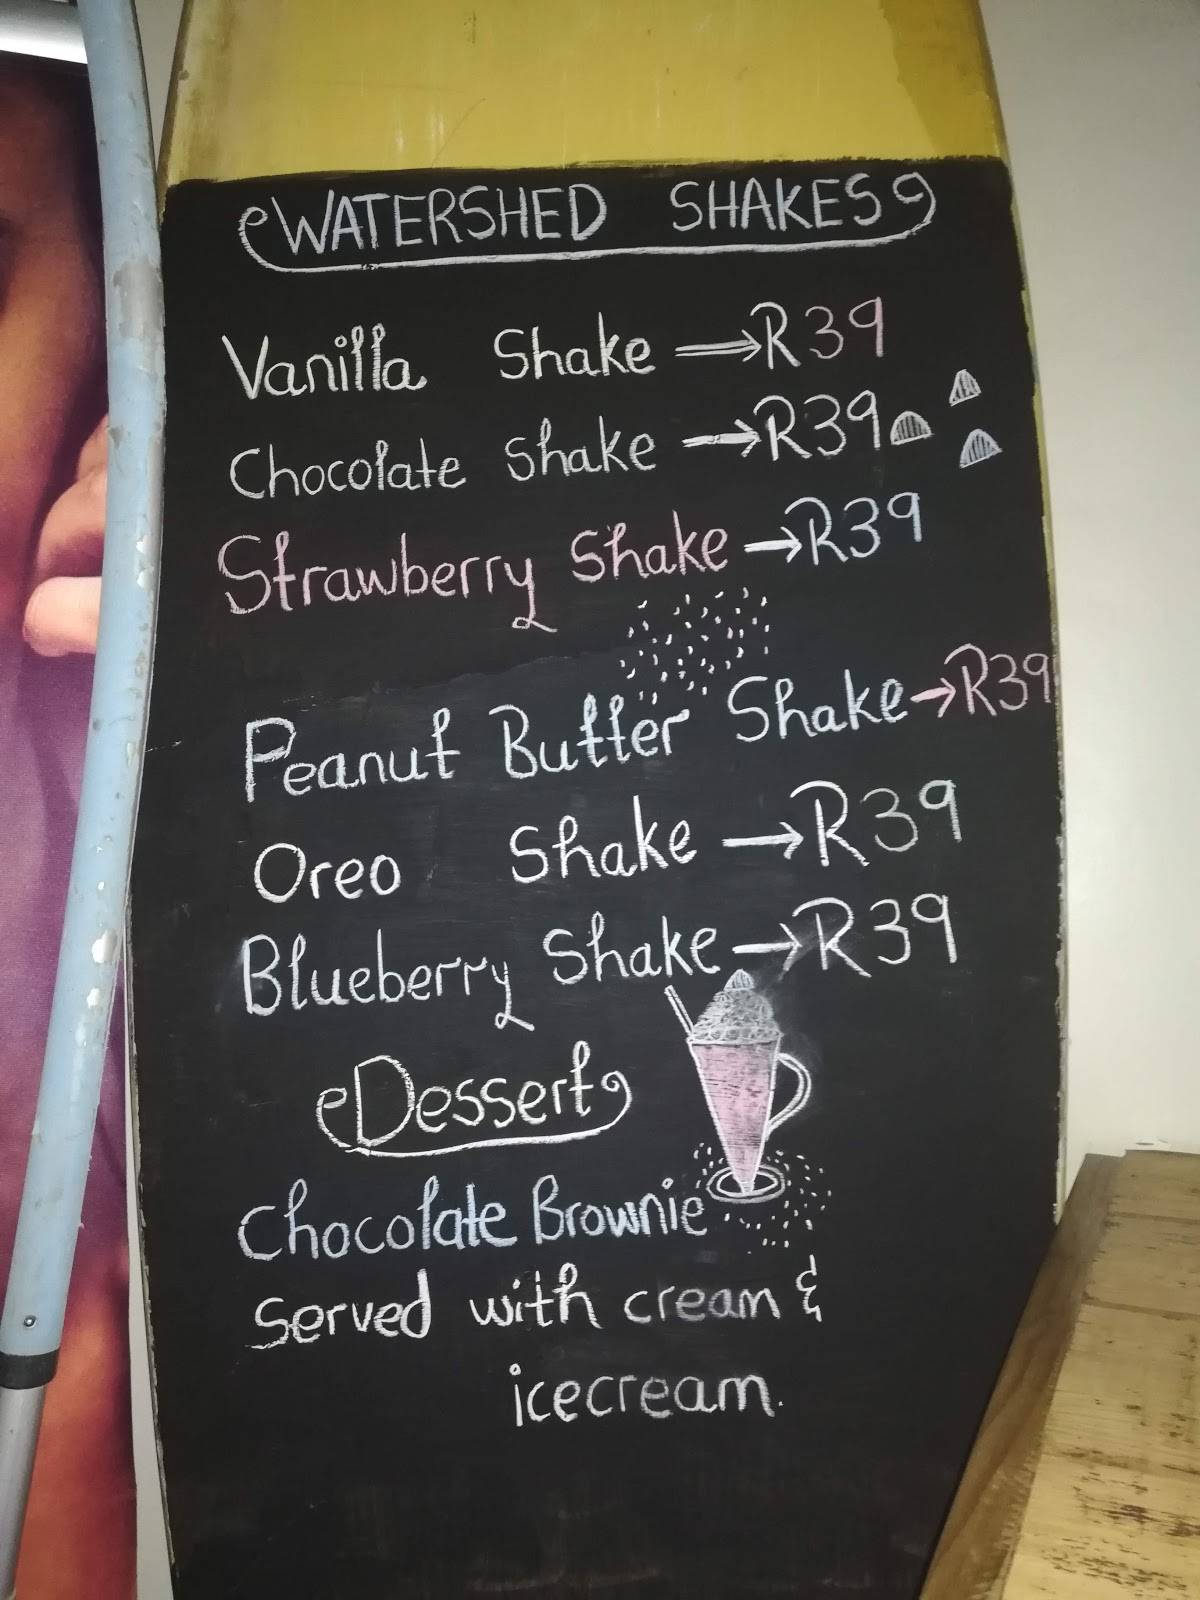 WATERSHED SHAKES
Vanilla Shake →R39
Chocolate Shake →R39
Strawberry Shake →R39
Peanut Butter Shake →R39
Oreo Shake →R39
Blueberry Shake →R39
Dessert
Chocolate Brownie
Served with cream &
icecream.